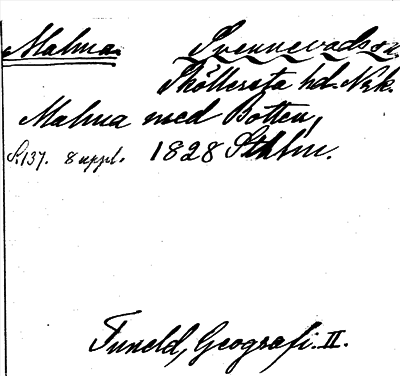 Malma. Svennevads sn.
Sköllersta hd. Nrk.
Malma med Botten,
S. 137. 8 uppl. 1828 Sthlm.
Tuneld, Geografi. II.